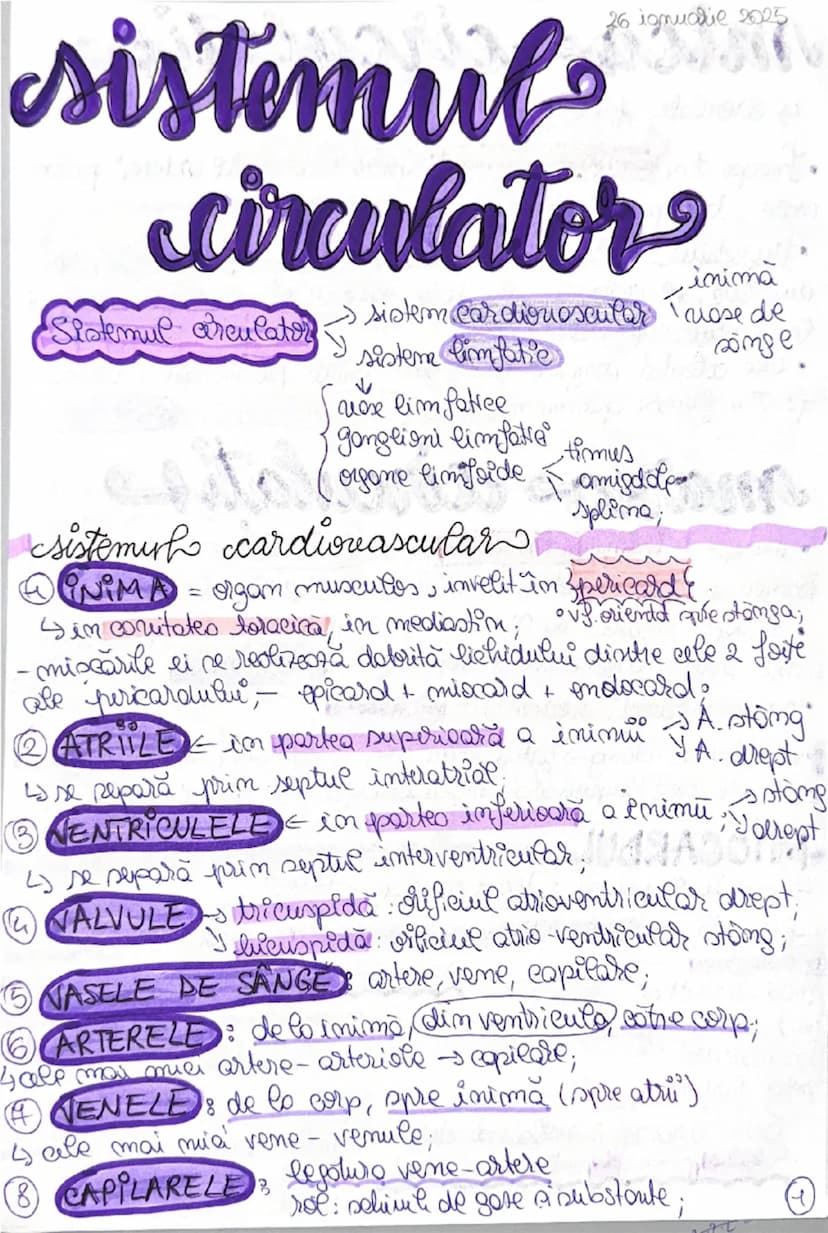 26 ianuarie 2025
sistemul
circulator
Sistemul circulator → sistem cardiovascular inima
vase de sânge
↘ sistem limfatic
vase limfatice
ganglioni limfatici
organe limfoide timus
amigdale
splina;
sistemul cardiovascular
① INIMA = organ musculos, învelit în pericard
↳ în cavitatea toracică, în mediastin; vf. orientat spre stânga;
- mișcările ei se realizează datorită lichidului dintre cele 2 foițe
ale pericardului; - epicard + miocard + endocard;
② ATRIILE ← în partea superioară a inimii → A. stâng
↘ A. drept
↳ se separă prin septul interatrial.
③ VENTRICULELE ← în partea inferioară a inimii; → stâng
↘ drept
↳ se separă prin septul interventricular;
④ VALVULE → tricuspidă: orificiul atrioventricular drept;
↘ bicuspidă: orificiul atrio-ventricular stâng;
⑤ VASELE DE SÂNGE: artere, vene, capilare;
⑥ ARTERELE: de la inimă, din ventricule, către corp;
↳ cele mai mici artere - arteriole → capilare;
⑦ VENELE: de la corp, spre inimă (spre atrii)
↳ cele mai mici vene - venule;
⑧ CAPILARELE: legătura vene-artere
rol: schimb de gaze și substanțe;
①